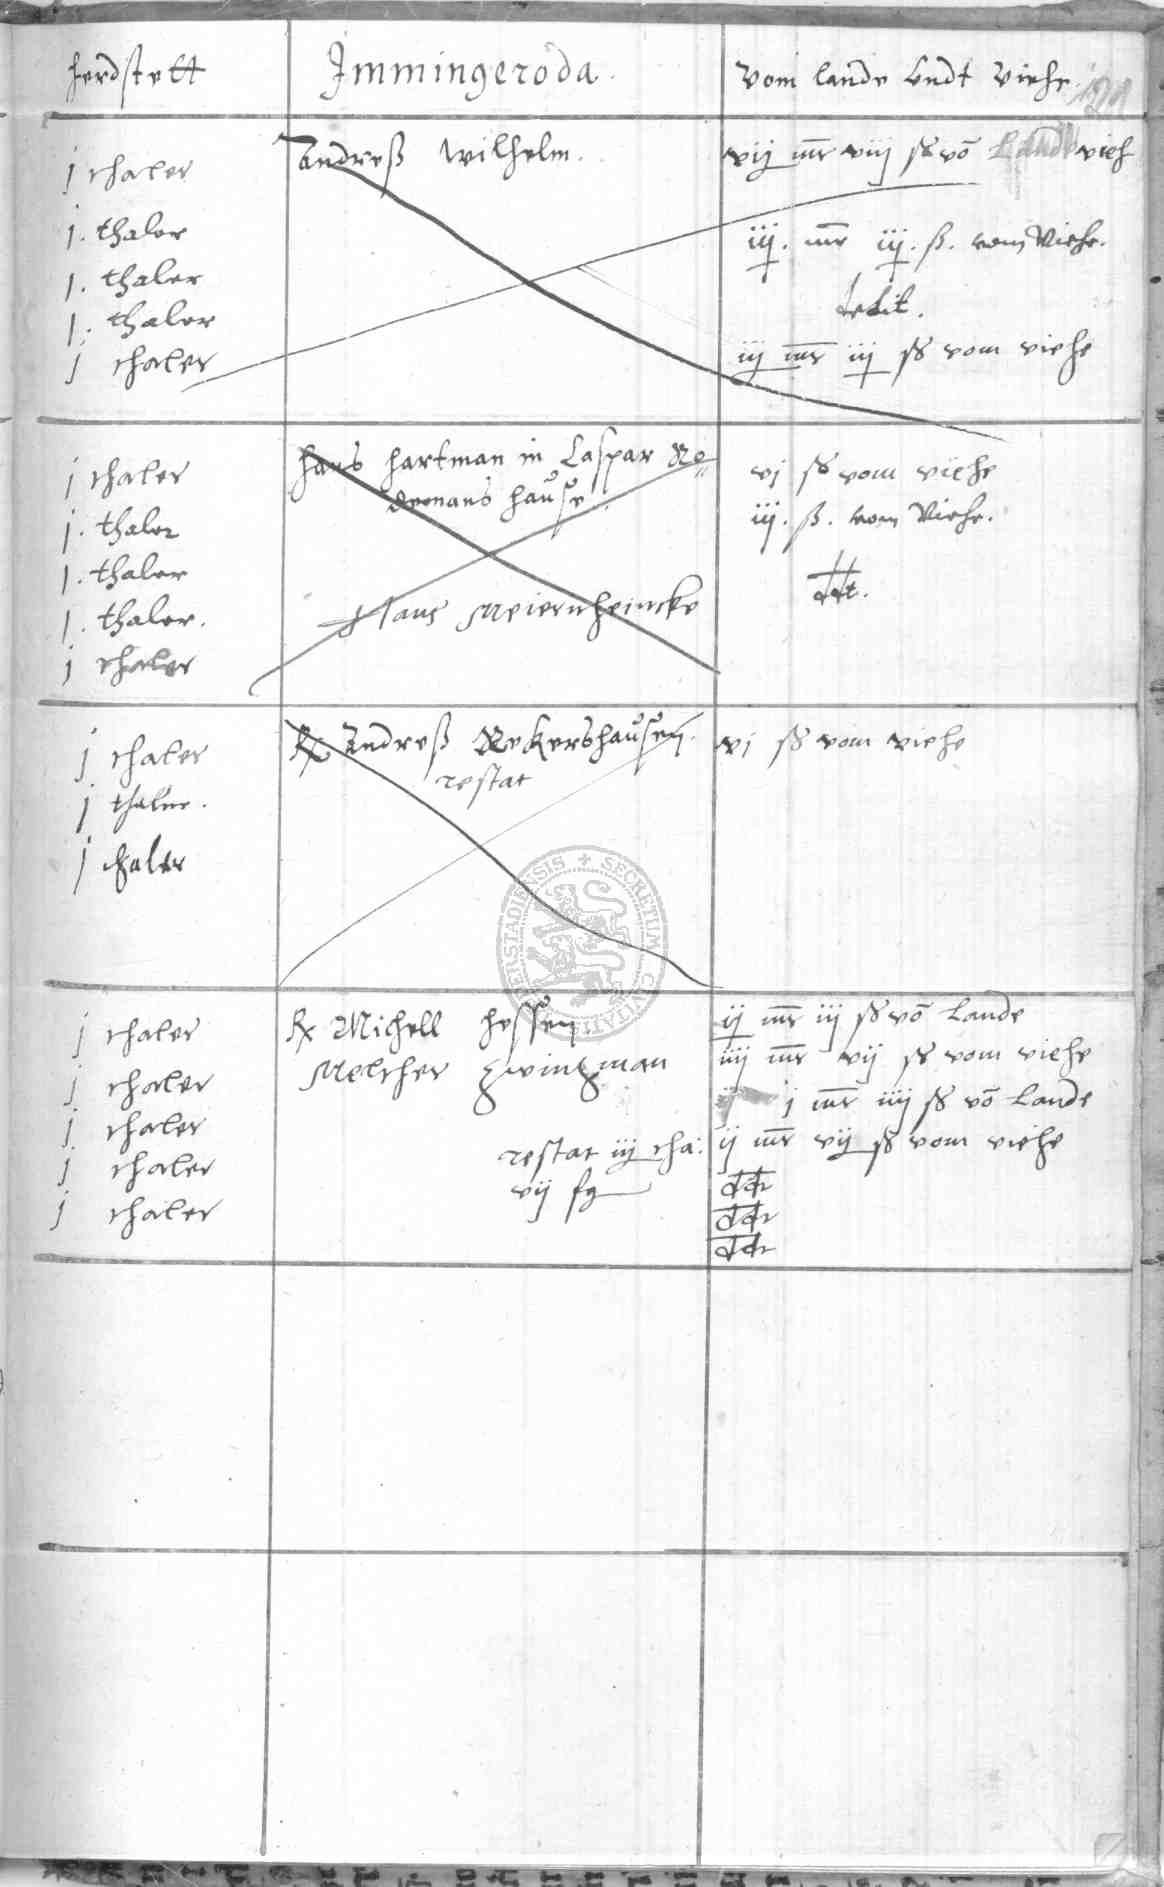 herdstett
Immingeroda.
Vom lande Undt Viehe
j thaler
j. thaler
j. thaler
j. thaler
j thaler
Andreß Wilhelm.
vij mr viij ß vō Land vieh
iij. mr iij. ß. vom Viehe.
dedit.
iij mr iij ß vom viehe
j thaler
j. thaler
j. thaler
j. thaler.
j thaler
hans hartman in Caspar Ro
hause
Hans Meiernheincke
vj ß vom viehe
iij. ß. vom Viehe.
ddt.
j thaler
j thaler.
j thaler
Andreß Rekershausen.
restat
vj ß vom viehe
SECRETUM CIVITATIS
j thaler
j thaler
j thaler
j thaler
j thaler
Michell hessen.
Melcher Zwintzman
restat iij tha:
vij
ij mr iij ß vō Lande
iiij mr vij ß vom viehe
j mr iiij ß vō Lande
ij mr vij ß vom viehe
ddt
ddt
ddt